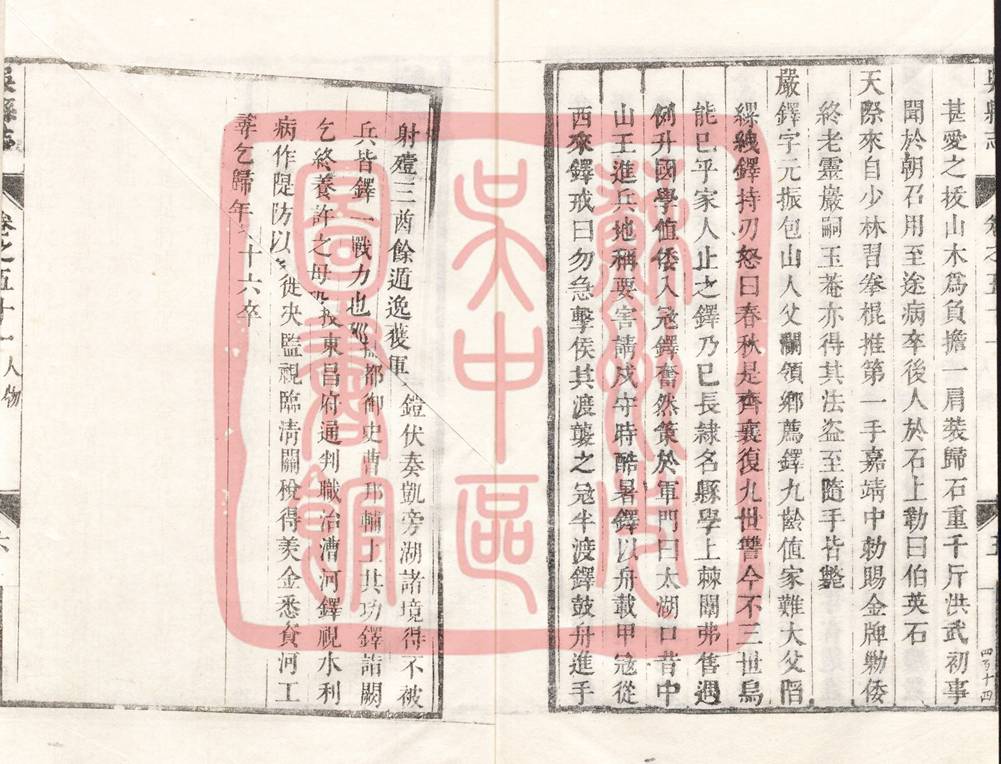 吳縣志
卷之五十一
五
四百十四
甚愛之拔山木爲負擔一肩裝歸石重千斤洪武初事
聞於朝召用至途病卒後人於石上勒曰伯英石
天際來自少林習拳棍推第一手嘉靖中勅賜金牌勦倭
終老靈巖嗣玉菴亦得其法盜至隨手皆斃
嚴鐸字元振包山人父瀾領鄉薦鐸九齡值家難大父䧟
縲絏鐸持刃怒曰春秋是齊襄復九世讐今不三世烏
能已乎家人止之鐸乃已長隸名縣學上棘闈弗售遇
例升國學值倭入寇鐸奮然策於軍門曰太湖口昔中
山王進兵地稱要害請戍守時酷暑鐸以舟載甲寇從
西來鐸戒曰勿急擊俟其渡襲之寇半渡鐸鼓舟進手
射殪三酋餘遁逸獲軍鎧伏奏凱旁湖諸境得不被
兵皆鐸一戰力也巡撫都御史曹邦輔上其功鐸詣闕
乞終養許之母歿授東昌府通判職治漕河鐸視水利
病作隄防以徙決監視臨清關稅得羨金悉貧河工
尋乞歸年十六卒
吳縣志
卷之五十一
人物
六
蘇州市
吳中區
圖書館